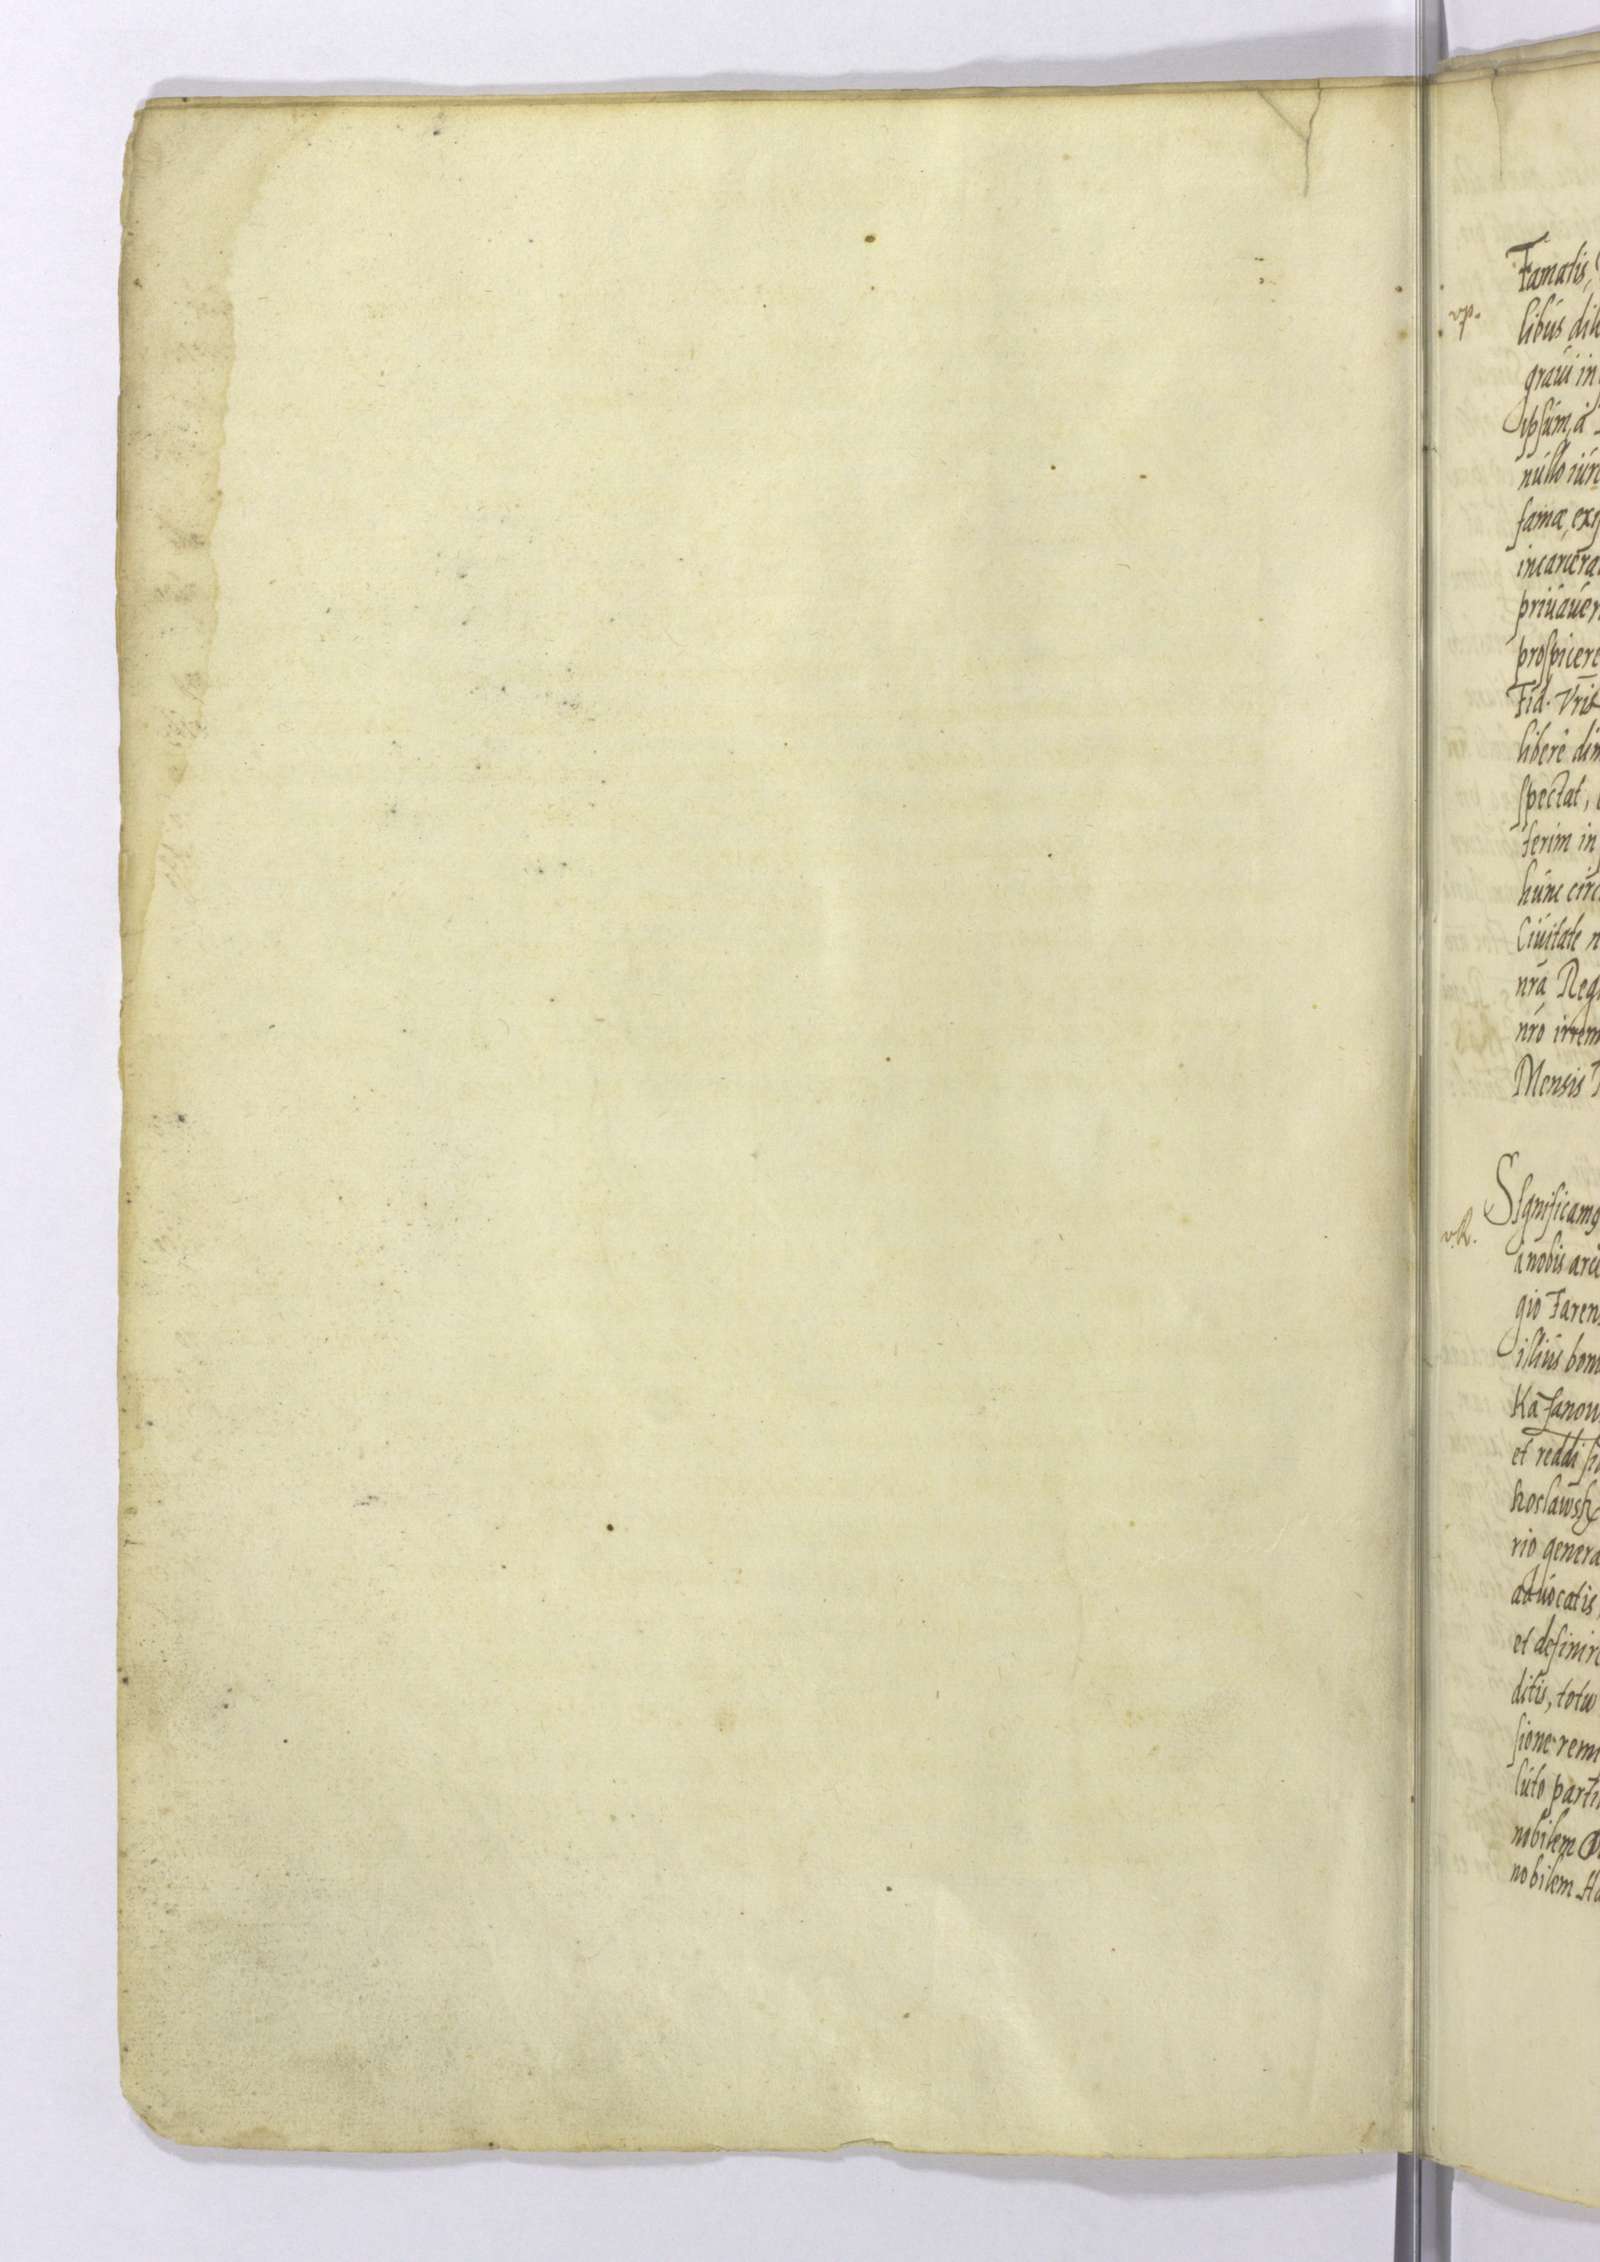 Famatis,
vp.
libus dil
gravi in
ipsum, a
nullo iure
famæ, exi
incarcera
privaver
prospicere
Fid. Vris
libere dim
spectat,
terim in
hunc circ
Civitate n
nrã Reg
nrõ irrem
Mensis
Significamq
vR.
a nobis arci
gio Taren
illius bon
Kasanow
et reddi si
koslawsk
rio genera
advocatis,
et definire
ditis, totu
sione remi
luto parti
nobilem
nobilem